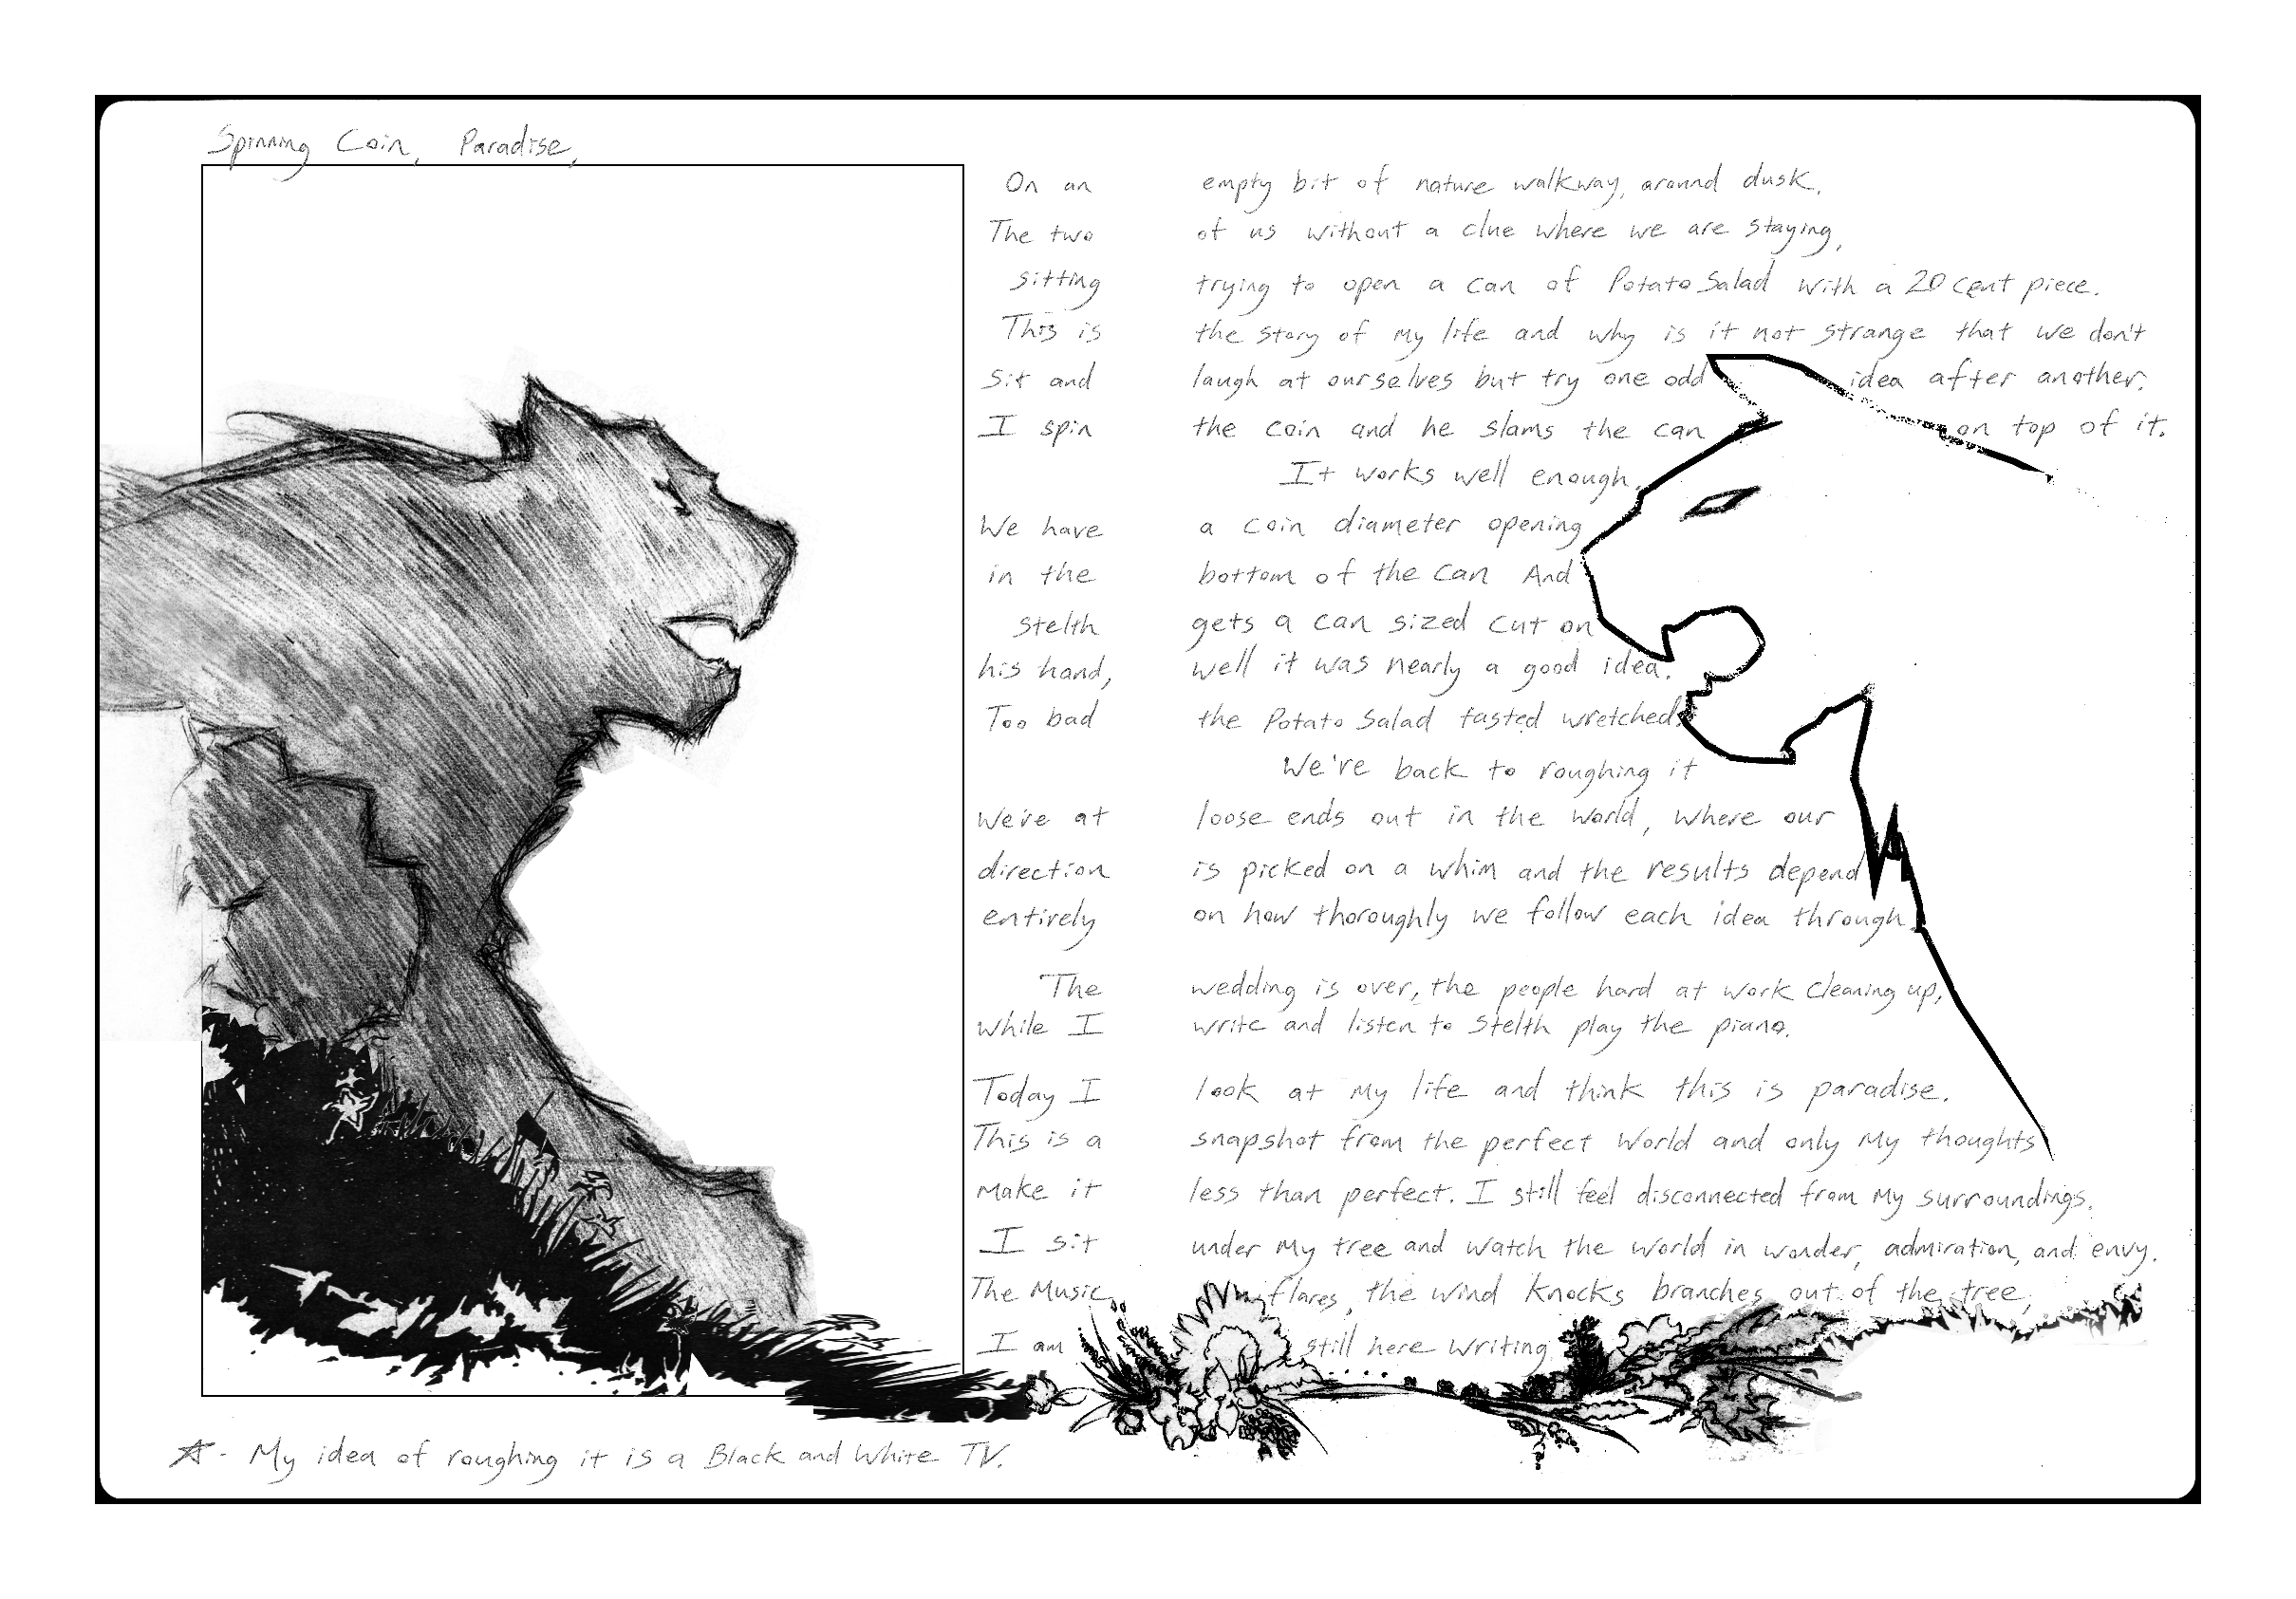 Spinning Coin, Paradise,
On an empty bit of nature walkway, around dusk.
The two of us without a clue where we are staying,
sitting trying to open a can of Potato Salad with a 20 cent piece.
This is the story of my life and why is it not strange that we don't
Sit and laugh at ourselves but try one odd idea after another.
I spin the coin and he slams the can on top of it.
It works well enough.
We have a coin diameter opening
in the bottom of the can And
Stelth gets a can sized cut on
his hand, well it was nearly a good idea.
Too bad the Potato Salad tasted wretched.
We're back to roughing it
We're at loose ends out in the world, where our
direction is picked on a whim and the results depend
entirely on how thoroughly we follow each idea through.
The wedding is over, the people hard at work cleaning up,
while I write and listen to Stelth play the piano.
Today I look at my life and think this is paradise.
This is a snapshot from the perfect World and only my thoughts
make it less than perfect. I still feel disconnected from my surroundings.
I sit under my tree and watch the world in wonder, admiration, and envy.
The Music flares, the wind knocks branches out of the tree,
I am still here writing
☆- My idea of roughing it is a Black and White TV.